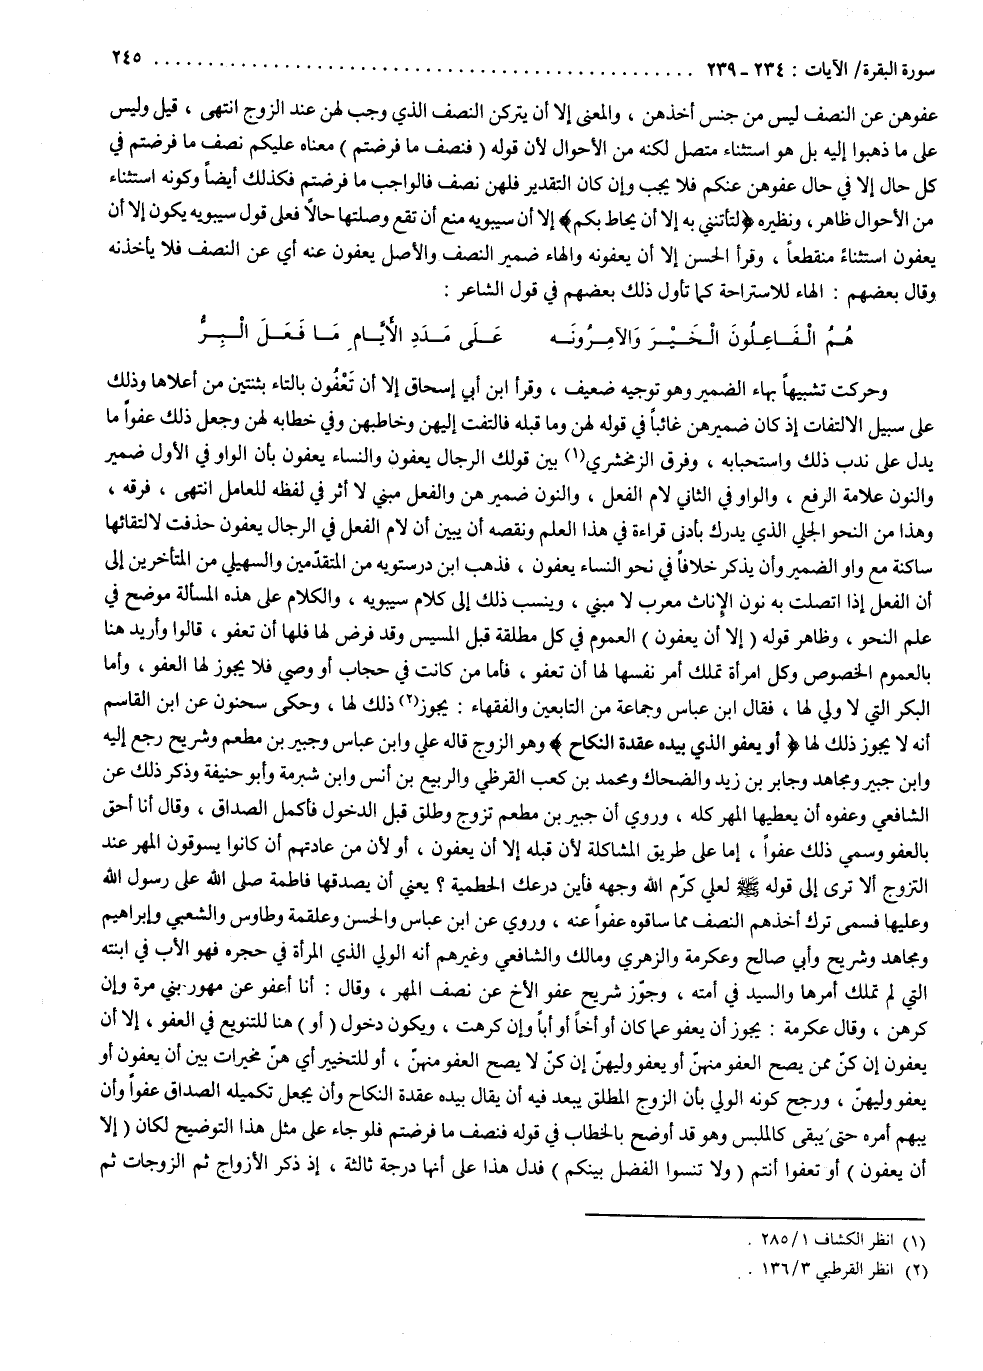 سورة البقرة/ الآيات : ٢٣٤ - ٢٣٩ ............................................................ ٢٤٥
عفوهن عن النصف ليس من جنس أخذهن ، والمعنى إلا أن يتركن النصف الذي وجب لهن عند الزوج انتهى ، قيل وليس
على ما ذهبوا إليه بل هو استثناء متصل لكنه من الأحوال لأن قوله ( فنصف ما فرضتم ) معناه عليكم نصف ما فرضتم في
كل حال إلا في حال عفوهن عنكم فلا يجب وإن كان التقدير فلهن نصف فالواجب ما فرضتم فكذلك أيضاً وكونه استثناء
من الأحوال ظاهر ، ونظيره ﴿لتأتنني به إلا أن يحاط بكم﴾ إلا أن سيبويه منع أن تقع وصلتها حالاً فعلى قول سيبويه يكون إلا أن
يعفون استثناءً منقطعاً ، وقرأ الحسن إلا أن يعفونه والهاء ضمير النصف والأصل يعفون عنه أي عن النصف فلا يأخذنه
وقال بعضهم : الهاء للاستراحة كما تأول ذلك بعضهم في قول الشاعر :
هُمُ الْفَاعِلُونَ الْخَيْرَ وَالآمِرُونَه عَلَى مَدَدِ الأَيَّامِ مَا فَعَلَ الْبِرُّ
وحركت تشبيهاً بهاء الضمير وهو توجيه ضعيف ، وقرأ ابن أبي إسحاق إلا أن تَعْفُون بالتاء بثنتين من أعلاها وذلك
على سبيل الالتفات إذ كان ضميرهن غائباً في قوله لهن وما قبله فالتفت إليهن وخاطبهن وفي خطابه لهن وجعل ذلك عفواً ما
يدل على ندب ذلك واستحبابه ، وفرق الزمخشري(١) بين قولك الرجال يعفون والنساء يعفون بأن الواو في الأول ضمير
والنون علامة الرفع ، والواو في الثاني لام الفعل ، والنون ضمير هن والفعل مبني لا أثر في لفظه للعامل انتهى ، فرقه ،
وهذا من النحو الجلي الذي يدرك بأدنى قراءة في هذا العلم ونقصه أن يبين أن لام الفعل في الرجال يعفون حذفت لالتقائها
ساكنة مع واو الضمير وأن يذكر خلافاً في نحو النساء يعفون ، فذهب ابن درستويه من المتقدّمين والسهيلي من المتأخرين إلى
أن الفعل إذا اتصلت به نون الإناث معرب لا مبني ، وينسب ذلك إلى كلام سيبويه ، والكلام على هذه المسألة موضح في
علم النحو ، وظاهر قوله ( إلا أن يعفون ) العموم في كل مطلقة قبل المسيس وقد فرض لها فلها أن تعفو ، قالوا وأريد هنا
بالعموم الخصوص وكل امرأة تملك أمر نفسها لها أن تعفو ، فأما من كانت في حجاب أو وصي فلا يجوز لها العفو ، وأما
البكر التي لا ولي لها ، فقال ابن عباس وجماعة من التابعين والفقهاء : يجوز(٢) ذلك لها ، وحكى سحنون عن ابن القاسم
أنه لا يجوز ذلك لها ﴿ أو يعفو الذي بيده عقدة النكاح ﴾ وهو الزوج قاله علي وابن عباس وجبير بن مطعم وشريح رجع إليه
وابن جبير ومجاهد وجابر بن زيد والضحاك ومحمد بن كعب القرظي والربيع بن أنس وابن شبرمة وأبو حنيفة وذكر ذلك عن
الشافعي وعفوه أن يعطيها المهر كله ، وروي أن جبير بن مطعم تزوج وطلق قبل الدخول فأكمل الصداق ، وقال أنا أحق
بالعفو وسمي ذلك عفواً ، إما على طريق المشاكلة لأن قبله إلا أن يعفون ، أو لأن من عادتهم أن كانوا يسوقون المهر عند
التزوج ألا ترى إلى قوله ﷺ لعلي كرّم الله وجهه فأين درعك الحطمية ؟ يعني أن يصدقها فاطمة صلى الله على رسول الله
وعليها فسمى ترك أخذهم النصف مما ساقوه عفواً عنه ، وروي عن ابن عباس والحسن وعلقمة وطاوس والشعبي وإبراهيم
ومجاهد وشريح وأبي صالح وعكرمة والزهري ومالك والشافعي وغيرهم أنه الولي الذي المرأة في حجره فهو الأب في ابنته
التي لم تملك أمرها والسيد في أمته ، وجوّز شريح عفو الأخ عن نصف المهر ، وقال : أنا أعفو عن مهور بني مرة وإن
كرهن ، وقال عكرمة : يجوز أن يعفو عما كان أو أخاً أو أباً وإن كرهت ، ويكون دخول ( أو ) هنا للتنويع في العفو ، إلا أن
يعفون إن كنّ ممن يصح العفو منهنّ أو يعفو وليهنّ إن كنّ لا يصح العفو منهنّ ، أو للتخيير أي هنّ مخيرات بين أن يعفون أو
يعفو وليهنّ ، ورجح كونه الولي بأن الزوج المطلق يبعد فيه أن يقال بيده عقدة النكاح وأن يجعل تكميله الصداق عفواً وأن
يبهم أمره حتى يبقى كالملبس وهو قد أوضح بالخطاب في قوله فنصف ما فرضتم فلو جاء على مثل هذا التوضيح لكان ( إلا
أن يعفون ) أو تعفوا أنتم ( ولا تنسوا الفضل بينكم ) فدل هذا على أنها درجة ثالثة ، إذ ذكر الأزواج ثم الزوجات ثم
(١) انظر الكشاف ٢٨٥/١ .
(٢) انظر القرطبي ١٣٦/٣ .